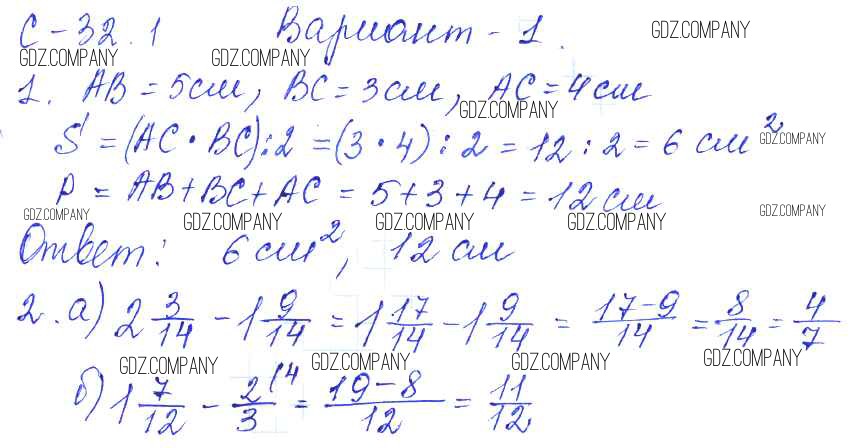 С-32.1 Вариант-1.
GDZ.COMPANY GDZ.COMPANY GDZ.COMPANY
1. AB = 5см, BC = 3см, AC = 4см
GDZ.COMPANY
S = (AC · BC):2 = (3 · 4) : 2 = 12 : 2 = 6 см²
GDZ.COMPANY
P = AB + BC + AC = 5 + 3 + 4 = 12 см
GDZ.COMPANY GDZ.COMPANY GDZ.COMPANY GDZ.COMPANY GDZ.COMPANY
Ответ: 6 см², 12 см
2. а) 2 3/14 - 1 9/14 = 1 17/14 - 1 9/14 = (17-9)/14 = 8/14 = 4/7
GDZ.COMPANY GDZ.COMPANY GDZ.COMPANY GDZ.COMPANY
б) 1 7/12 - 2/3 (4 = (19-8)/12 = 11/12